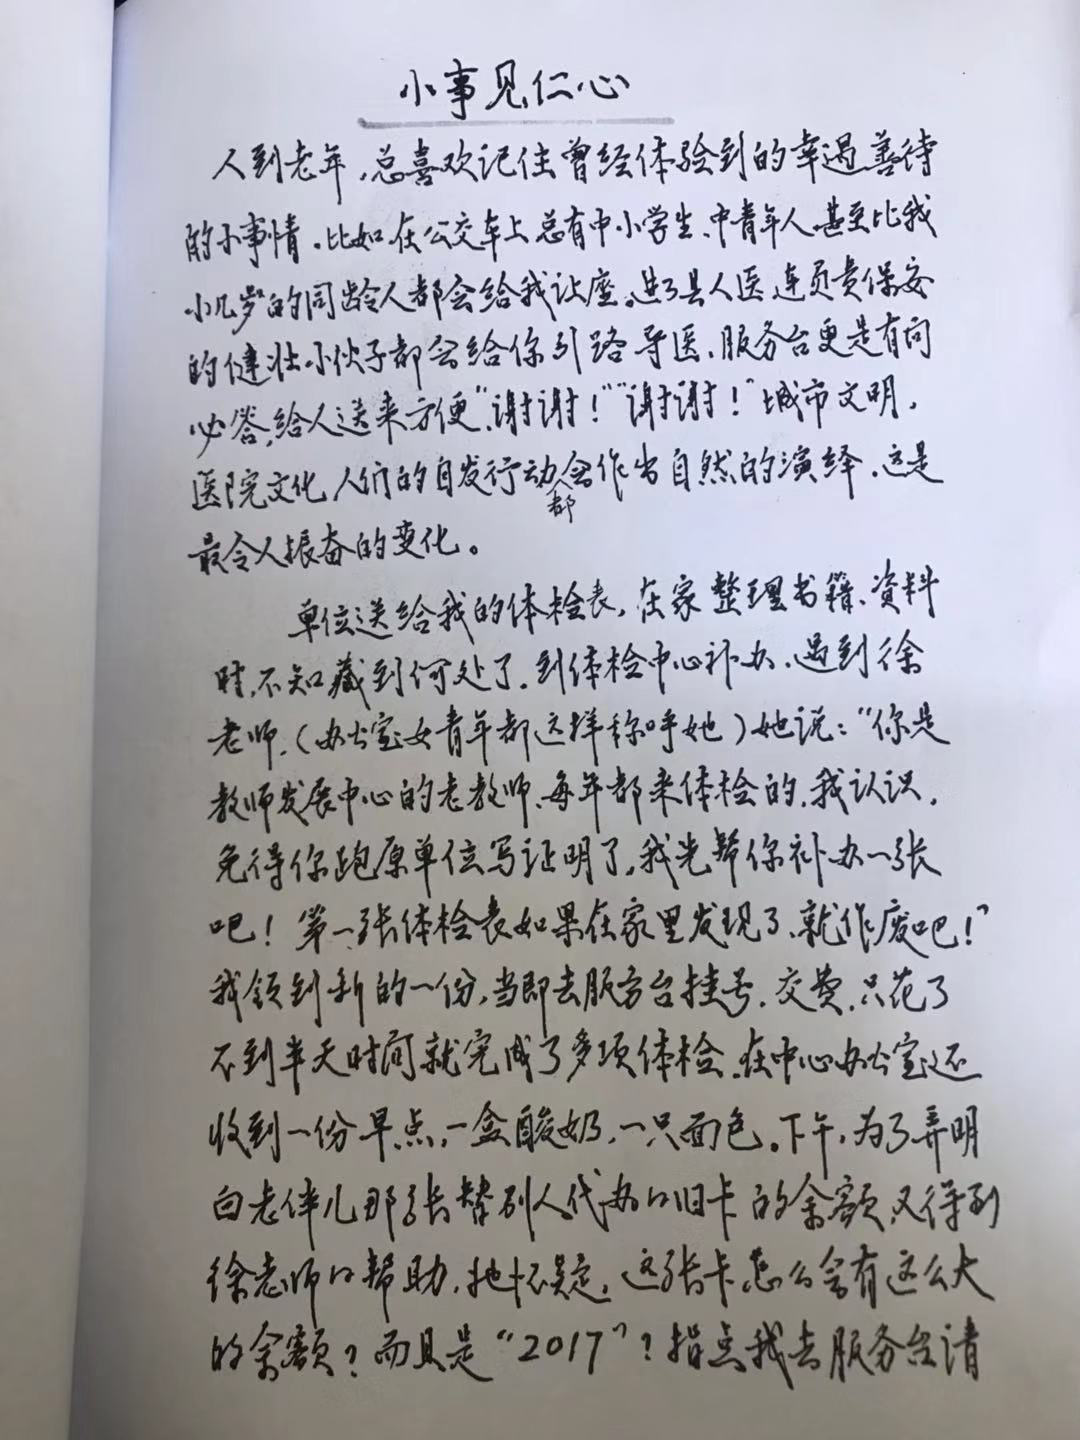 小事见仁心
人到老年，总喜欢记住曾经体验到的幸遇善待
的小事情。比如在公交车上总有中小学生、中青年人、甚至比我
小几岁的同龄人都会给我让座。进了县人医连负责保安
的健壮小伙子都会给你引路导医，服务台更是有问
必答，给人送来方便“谢谢！”“谢谢！”城市文明，
医院文化，人们的自发行动都会作出自然的演绎，这是
最令人振奋的变化。
单位送给我的体检表，在家整理书籍、资料
时，不知藏到何处了，到体检中心补办，遇到徐
老师，（办公室女青年都这样称呼她）她说：“你是
教师发展中心的老教师，每年都来体检的，我认识，
免得你跑原单位写证明了，我先帮你补办一张
吧！第一张体检表如果在家里发现了，就作废吧！”
我领到新的一份，当即去服务台挂号，交费，只花了
不到半天时间就完成了多项体检，在中心办公室还
收到一份早点，一盒酸奶，一只面包。下午，为了弄明
白老伴儿那张替别人代办的旧卡的余额，又得到
徐老师的帮助，她怀疑，这张卡怎么会有这么大
的余额？而且是“2017”？指点我去服务台请